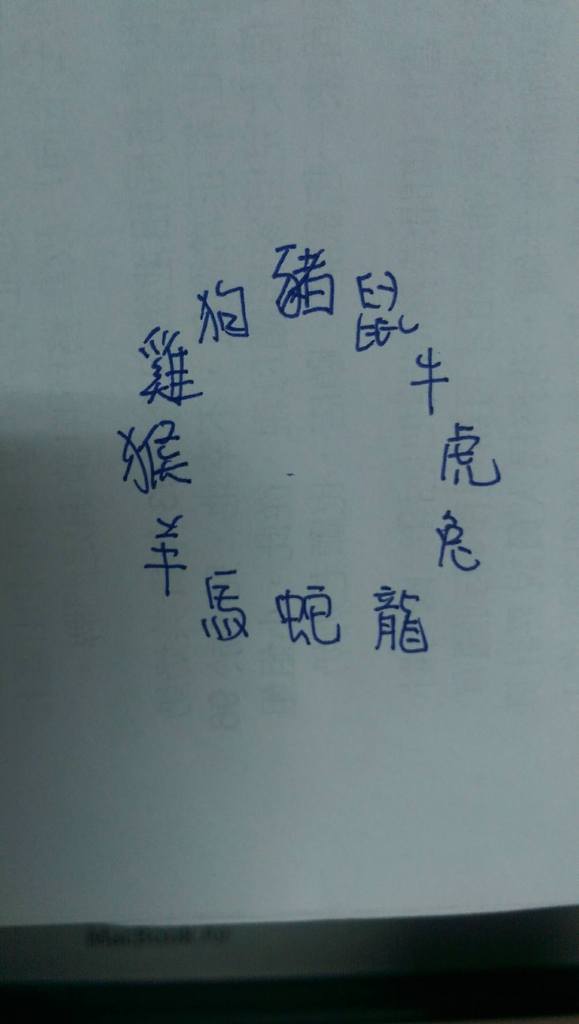 鼠
牛
虎
兔
龍
蛇
馬
羊
猴
雞
狗
豬
MacBook Air